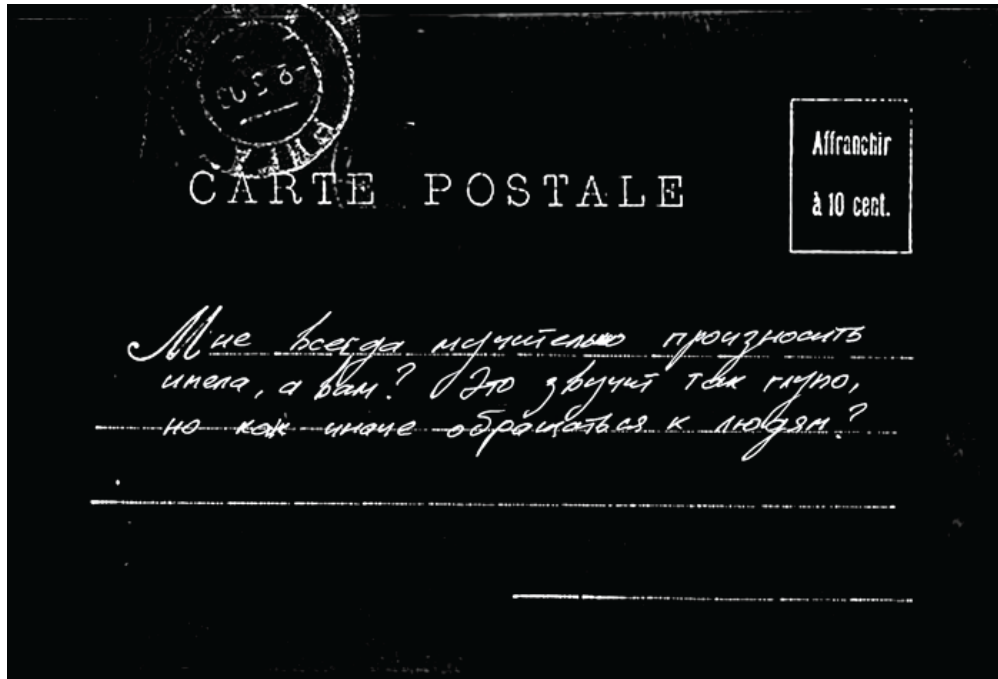 CARTE POSTALE
Affranchir
à 10 cent.
Мне всегда мучительно произносить
имена, а вам? Это звучит так глупо,
но как иначе обращаться к людям?